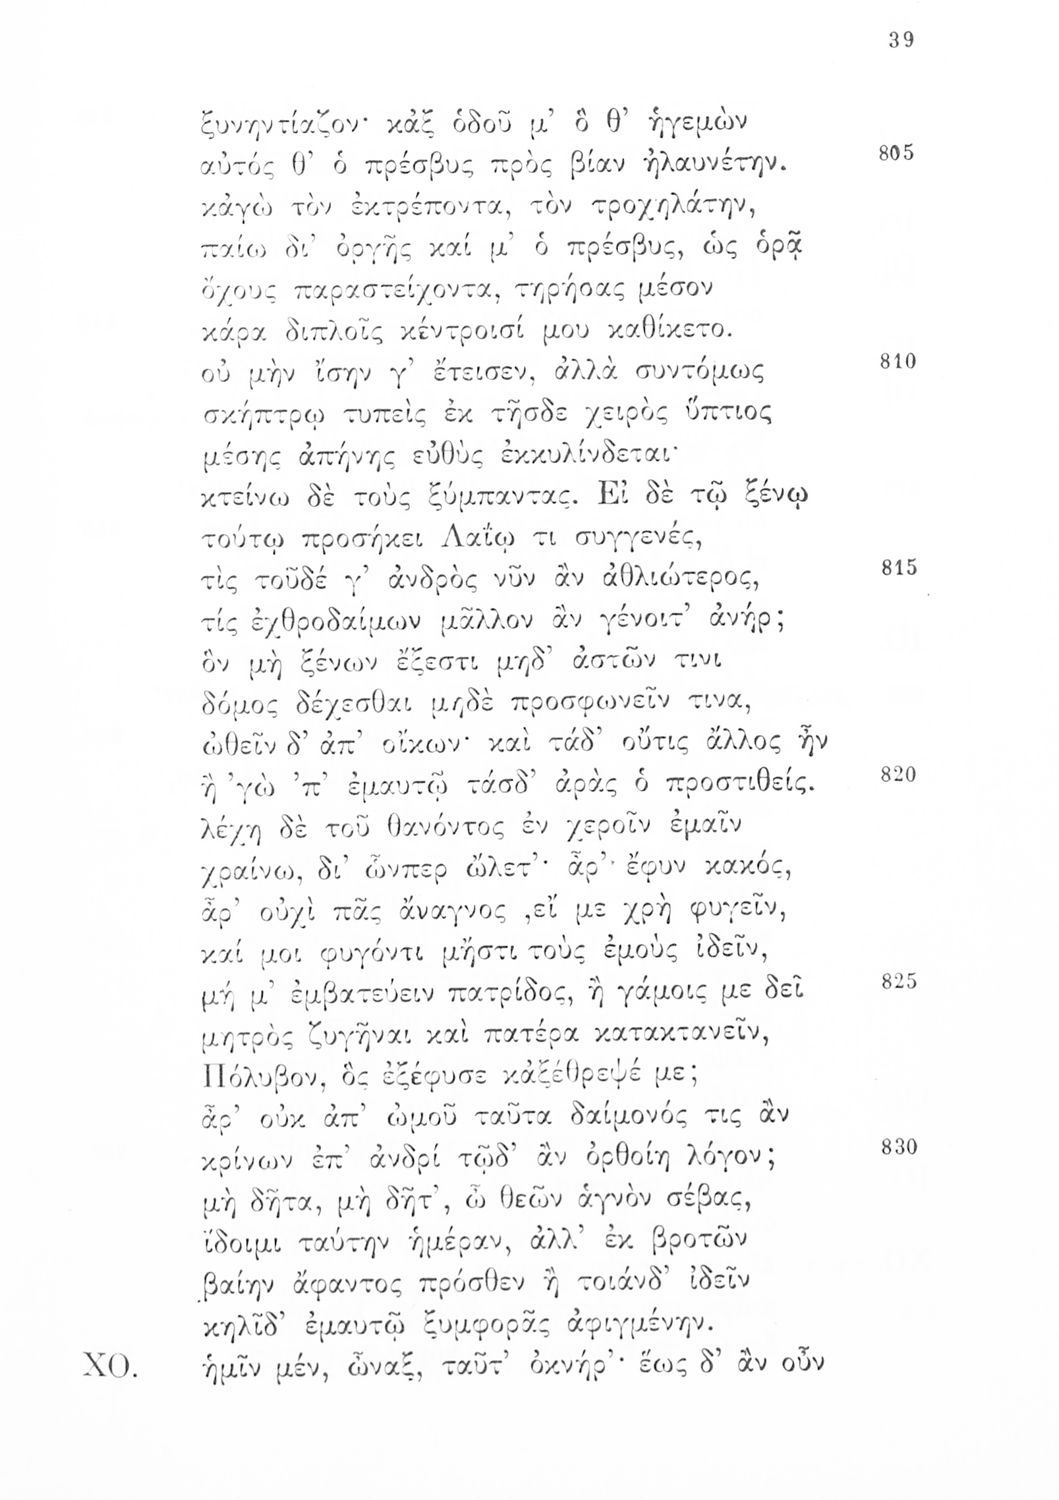 39
ξυνηντίαζον· κἀξ ὁδοῦ μ’ ὅ θ’ ἡγεμὼν
αὐτός θ’ ὁ πρέσβυς πρὸς βίαν ἠλαυνέτην. 805
κἀγὼ τὸν ἐκτρέποντα, τὸν τροχηλάτην,
παίω δι’ ὀργῆς καί μ’ ὁ πρέσβυς, ὡς ὁρᾷ
ὄχους παραστείχοντα, τηρήσας μέσον
κάρα διπλοῖς κέντροισί μου καθίκετο.
οὐ μὴν ἴσην γ’ ἔτεισεν, ἀλλὰ συντόμως 810
σκήπτρῳ τυπεὶς ἐκ τῆσδε χειρὸς ὕπτιος
μέσης ἀπήνης εὐθὺς ἐκκυλίνδεται·
κτείνω δὲ τοὺς ξύμπαντας. Εἰ δὲ τῷ ξένῳ
τούτῳ προσήκει Λαΐῳ τι συγγενές,
τὶς τοῦδέ γ’ ἀνδρὸς νῦν ἂν ἀθλιώτερος, 815
τίς ἐχθροδαίμων μᾶλλον ἂν γένοιτ’ ἀνήρ;
ὃν μὴ ξένων ἔξεστι μηδ’ ἀστῶν τινι
δόμος δέχεσθαι μηδὲ προσφωνεῖν τινα,
ὠθεῖν δ’ ἀπ’ οἴκων· καὶ τάδ’ οὔτις ἄλλος ἦν
ἢ ’γὼ ’π’ ἐμαυτῷ τάσδ’ ἀρὰς ὁ προστιθείς. 820
λέχη δὲ τοῦ θανόντος ἐν χεροῖν ἐμαῖν
χραίνω, δι’ ὧνπερ ὤλετ’· ἆρ’· ἔφυν κακός,
ἆρ’ οὐχὶ πᾶς ἄναγνος ,εἴ με χρὴ φυγεῖν,
καί μοι φυγόντι μἤστι τοὺς ἐμοὺς ἰδεῖν,
μή μ’ ἐμβατεύειν πατρίδος, ἢ γάμοις με δεῖ 825
μητρὸς ζυγῆναι καὶ πατέρα κατακτανεῖν,
Πόλυβον, ὃς ἐξέφυσε κἀξέθρεψέ με;
ἆρ’ οὐκ ἀπ’ ὠμοῦ ταῦτα δαίμονός τις ἂν
κρίνων ἐπ’ ἀνδρί τῷδ’ ἂν ὀρθοίη λόγον; 830
μὴ δῆτα, μὴ δῆτ’, ὦ θεῶν ἁγνὸν σέβας,
ἴδοιμι ταύτην ἡμέραν, ἀλλ’ ἐκ βροτῶν
βαίην ἄφαντος πρόσθεν ἢ τοιάνδ’ ἰδεῖν
κηλῖδ’ ἐμαυτῷ ξυμφορᾶς ἀφιγμένην.
ΧΟ. ἡμῖν μέν, ὦναξ, ταῦτ’ ὀκνήρ’· ἕως δ’ ἂν οὖν